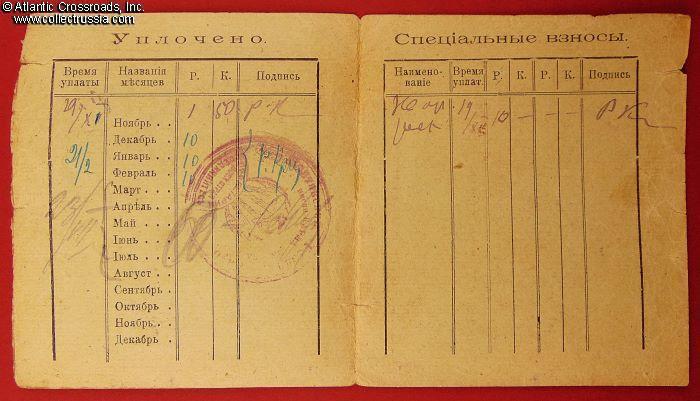 © Atlantic Crossroads, Inc.
www.collectrussia.com
Уплочено.
Время уплаты Названія мѣсяцев Р. К. Подпись
29/XI 1 50 Р К
Ноябрь . .
Декабрь . . 10
21/2 Январь . . 10
Февраль . . 10
Март . . .
Апрѣль . .
Май . . .
Іюнь . . .
Іюль . . .
Август . .
Сентябрь .
Октябрь .
Ноябрь . .
Декабрь .
Спеціальные взносы.
Наимено-ваніе Время уплат. Р. К. Р. К. Подпись
19 10 — — — Р К